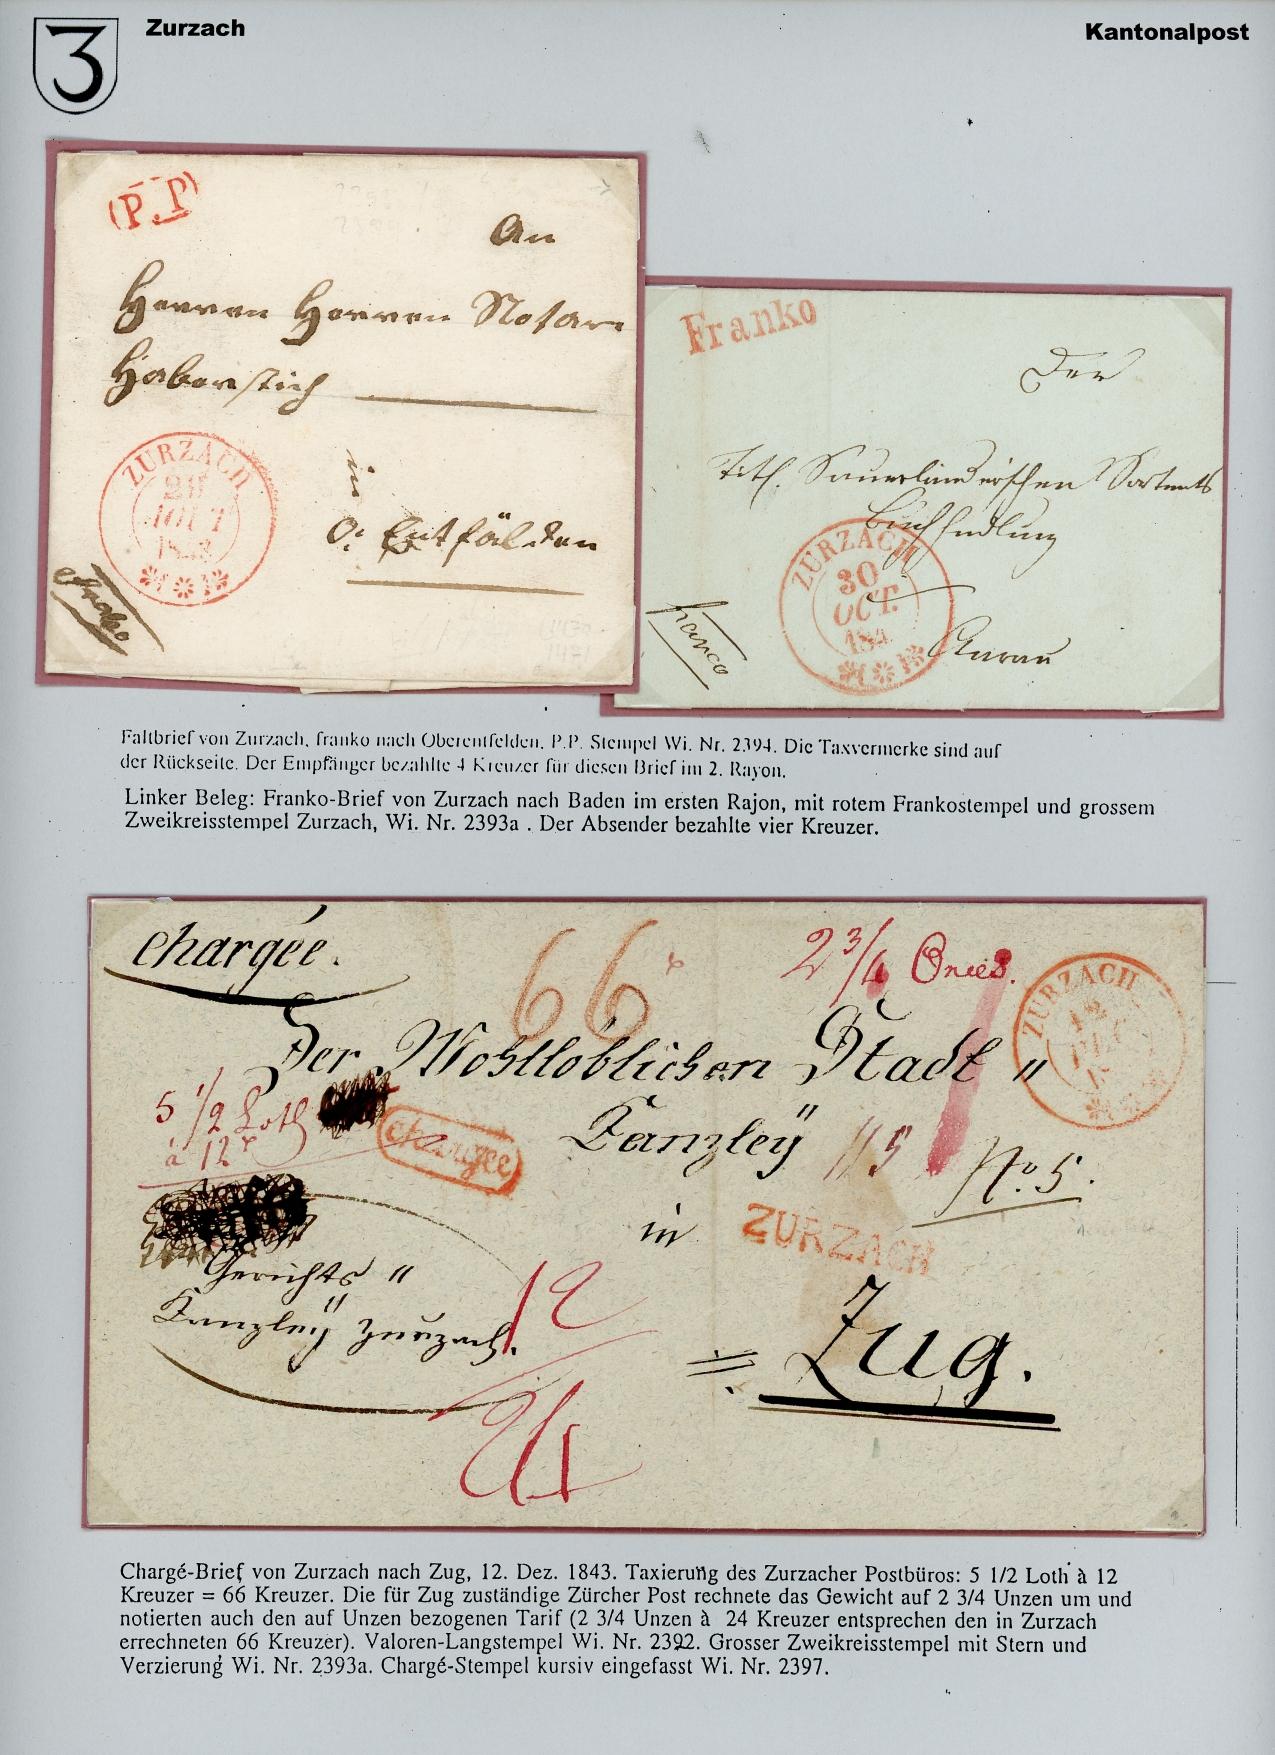 3
Zurzach
Kantonalpost
P.P
An
Herren Herren Notar
Haberstich
in
O: Entfälden
ZURZACH
Franko
Franko
Der
Titl. Sauerländerischen Sortmts
Buchhndlung
Aarau
ZURZACH
30
OCT.
184
franco
Faltbrief von Zurzach, franko nach Oberentfelden. P.P. Stempel Wi. Nr. 2394. Die Taxvermerke sind auf
der Rückseite. Der Empfänger bezahlte 4 Kreuzer für diesen Brief im 2. Rayon.
Linker Beleg: Franko-Brief von Zurzach nach Baden im ersten Rajon, mit rotem Frankostempel und grossem
Zweikreisstempel Zurzach, Wi. Nr. 2393a . Der Absender bezahlte vier Kreuzer.
chargée.
66
2 3/4 Onces.
ZURZACH
12
Der Wohlloblichen Stadt "
5 1/2 Loth
à 12 x
chargée
Kanzleÿ
No. 5.
in
ZURZACH
Gerichts "
Kanzleÿ Zurzach.
12
Zug.
24
Chargé-Brief von Zurzach nach Zug, 12. Dez. 1843. Taxierung des Zurzacher Postbüros: 5 1/2 Loth à 12
Kreuzer = 66 Kreuzer. Die für Zug zuständige Zürcher Post rechnete das Gewicht auf 2 3/4 Unzen um und
notierten auch den auf Unzen bezogenen Tarif (2 3/4 Unzen à 24 Kreuzer entsprechen den in Zurzach
errechneten 66 Kreuzer). Valoren-Langstempel Wi. Nr. 2392. Grosser Zweikreisstempel mit Stern und
Verzierung Wi. Nr. 2393a. Chargé-Stempel kursiv eingefasst Wi. Nr. 2397.